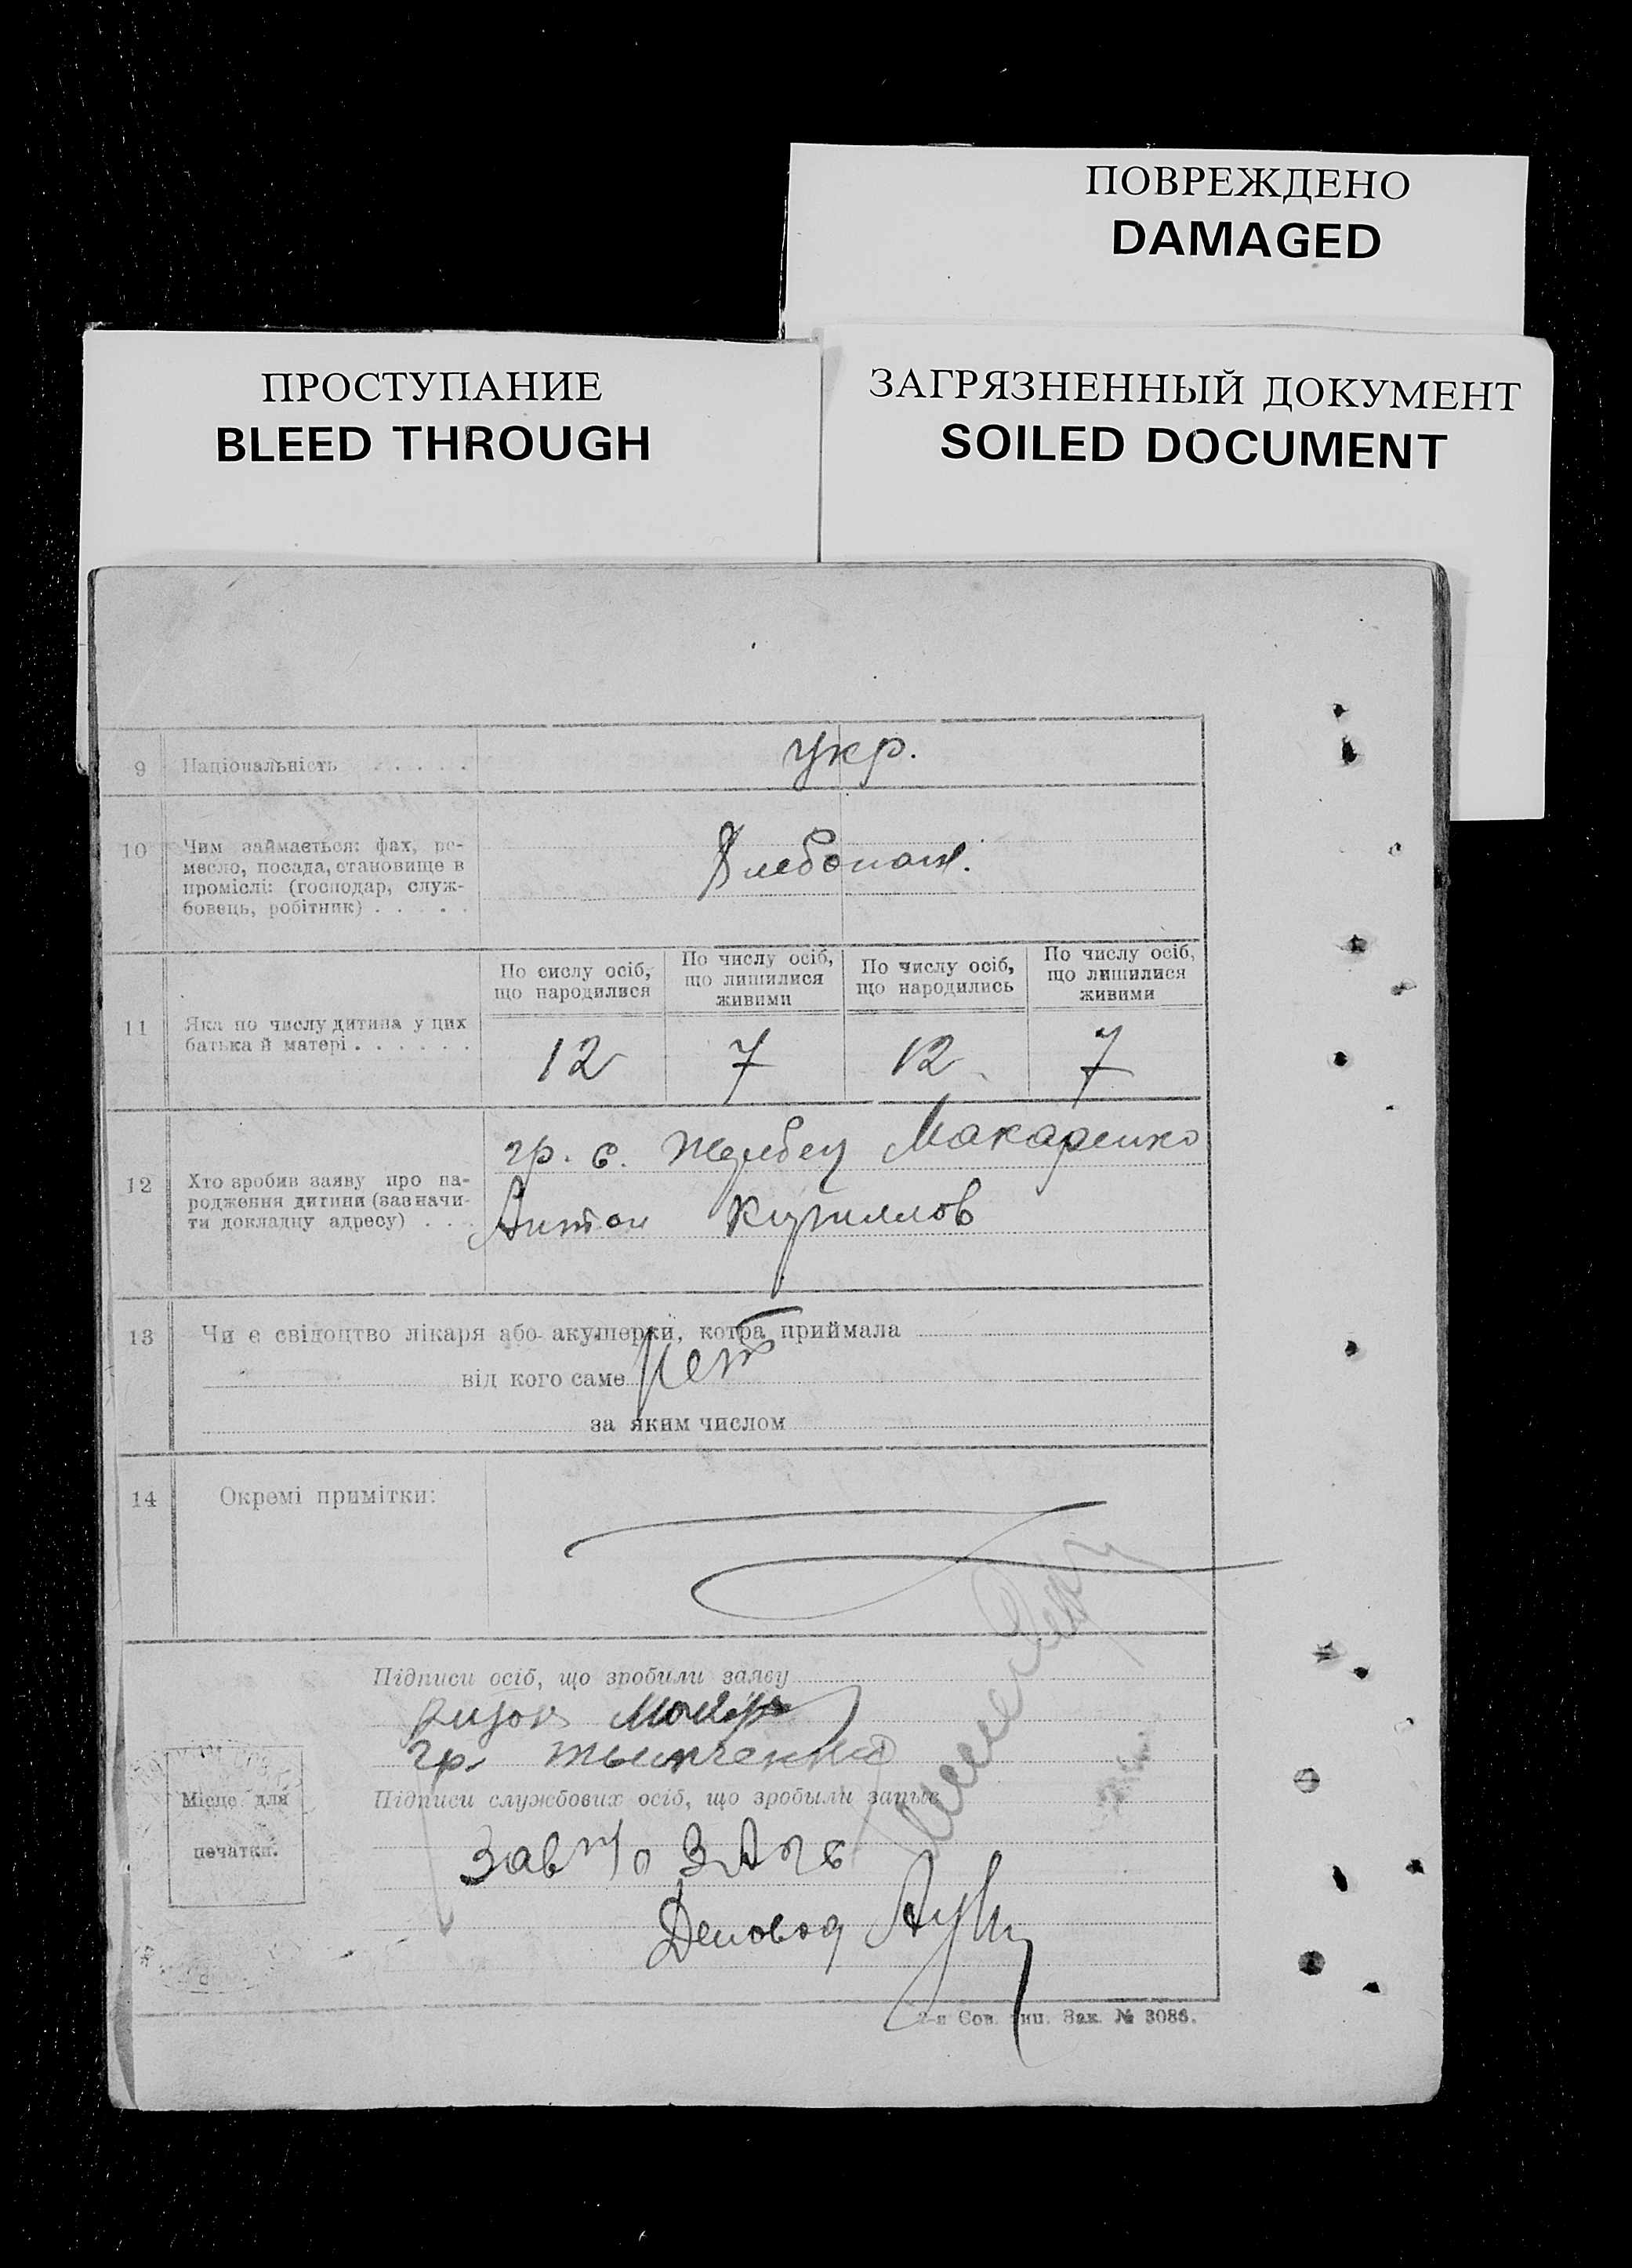 ПОВРЕЖДЕНО
DAMAGED
ПРОСТУПАНИЕ
BLEED THROUGH
ЗАГРЯЗНЕННЫЙ ДОКУМЕНТ
SOILED DOCUMENT
9 Національність . . . . . укр.
10 Чим займається: фах, ре-
месло, посада, становище в
проміслі: (господар, служ-
бовець, робітник) . . . . .
Хлебопаш.
По сислу осіб,
що народилися
По числу осіб,
що лишилися
живими
По числу осіб,
що народились
По числу осіб,
що лишилися
живими
11 Яка по числу дитина у цих
батька й матері . . . . . .
12 7 12 7
12 Хто зробив заяву про на-
родження дитини (зазначи-
ти докладну адресу) . . .
гр. с. Макаренко
Антон Кириллов
13 Чи є свідоцтво лікаря або акушерки, котра приймала
від кого саме нет
за яким числом
14 Окремі примітки:
Підписи осіб, що зробили заяву
гр.
Підписи службових осіб, що зробыли запыс
Місце для
печатки.
Зав
Деловод
2-я Сов. тип. Зак. № 3086.